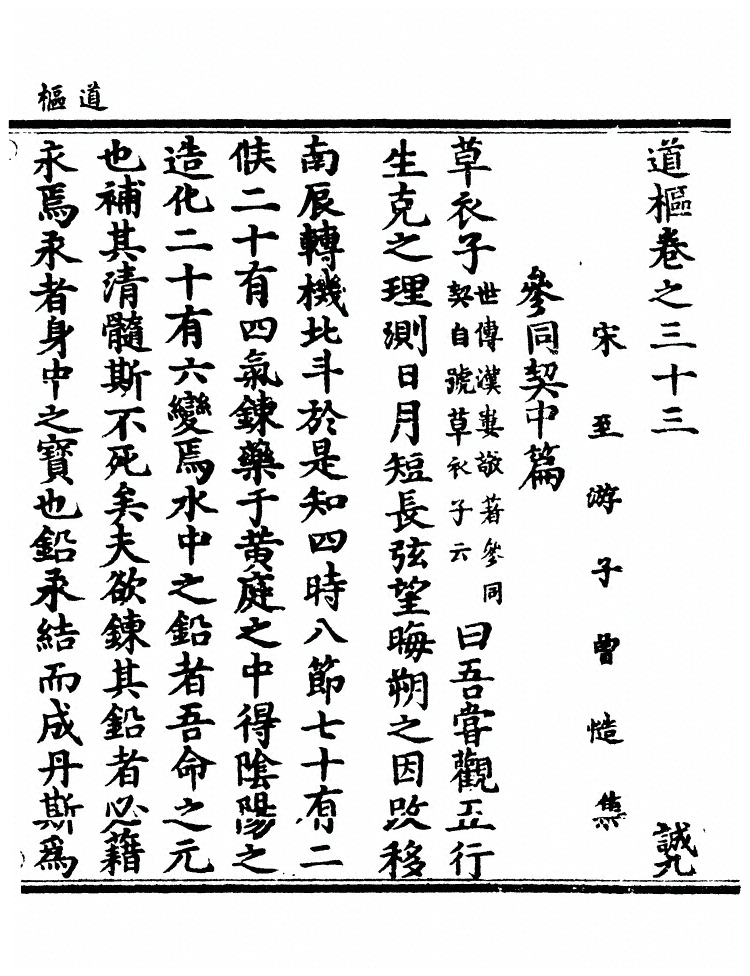 道樞
道樞卷之三十三 誠九
宋至游子曾慥集
參同契中篇
草衣子世傳漢婁敬著參同契自號草衣子云曰吾嘗觀五行
生克之理測日月短長弦望晦朔之因改移
南辰轉機北斗於是知四時八節七十有二
候二十有四氣鍊藥于黄庭之中得陰陽之
造化二十有六變焉水中之鉛者吾命之元
也補其清髓斯不死矣夫欲鍊其鉛者必籍
汞焉汞者身中之寶也鉛汞結而成丹斯爲